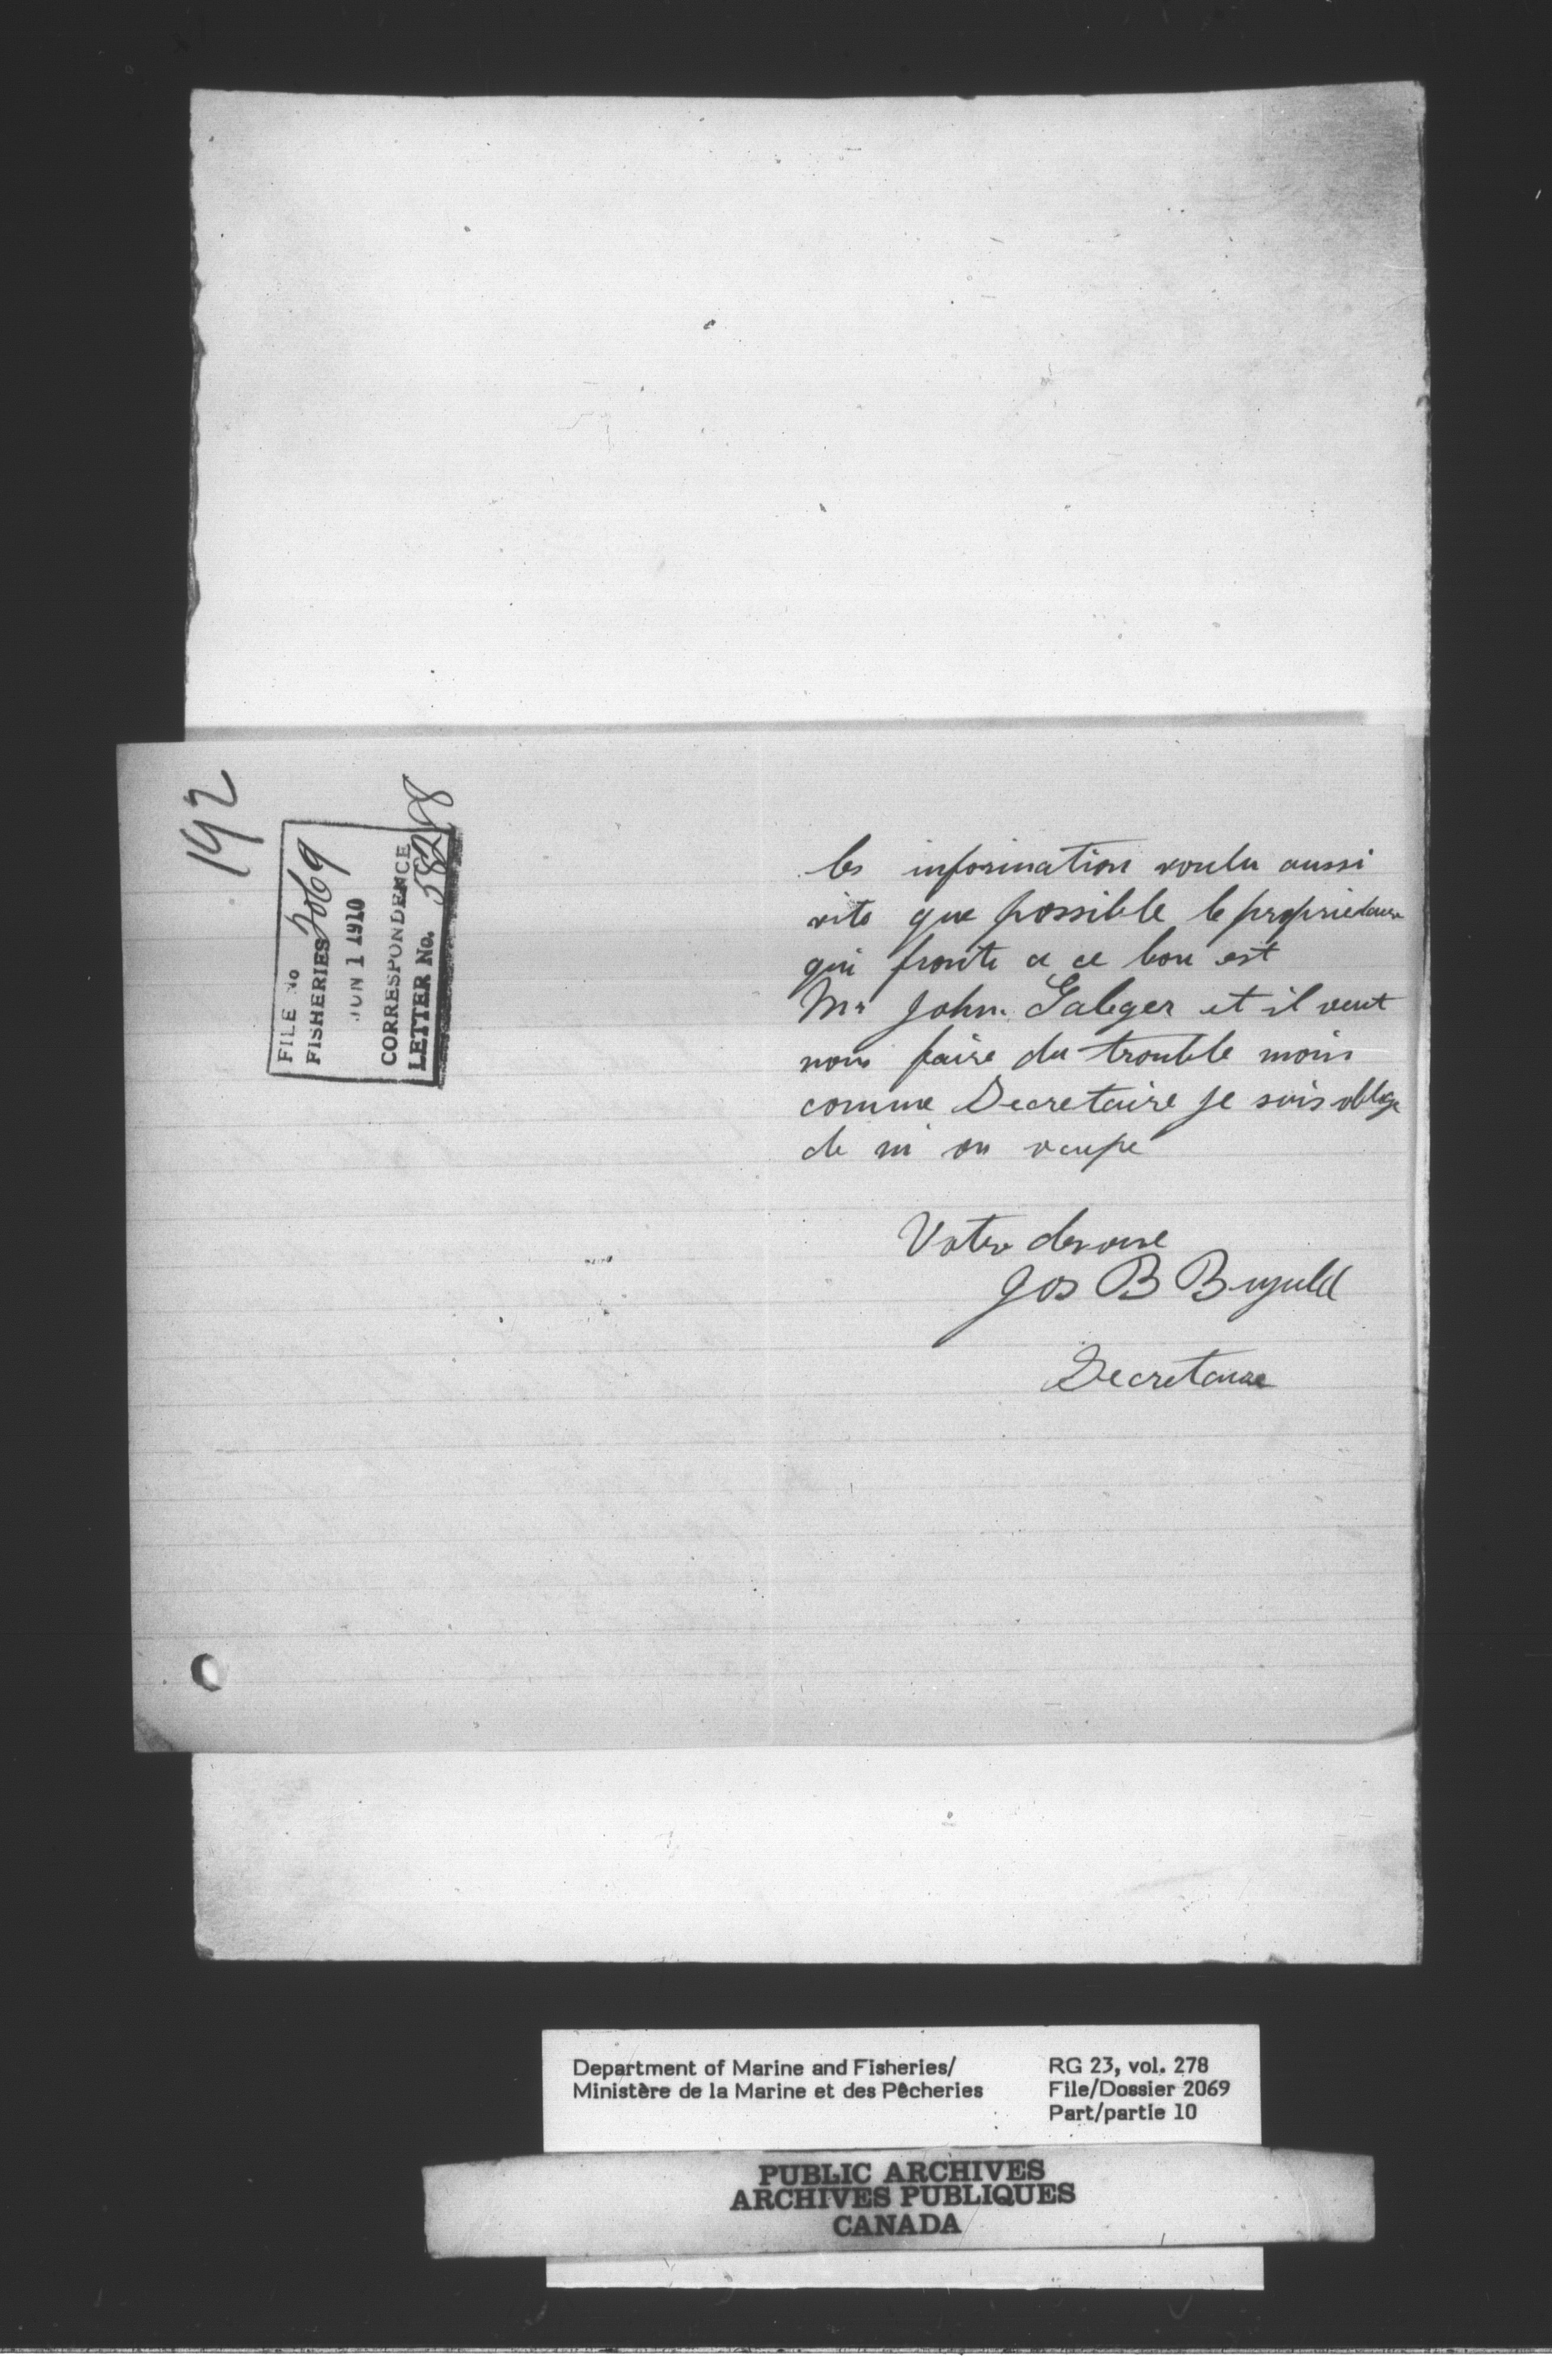 192
FILE No
FISHERIES 2069
JUN 1 1910
CORRESPONDENCE
LETTER No. 58288
les information voulu aussi
vite que possible le proprietaire
qui fronte a ce bou est
Mr John Galeger et il veut
nous faire du trouble mois
comme Secretaire je suis oblige
de m on ocupe
Votre devoue
Jos B
Secretaire
Department of Marine and Fisheries/
Ministère de la Marine et des Pêcheries
RG 23, vol. 278
File/Dossier 2069
Part/partie 10
PUBLIC ARCHIVES
ARCHIVES PUBLIQUES
CANADA